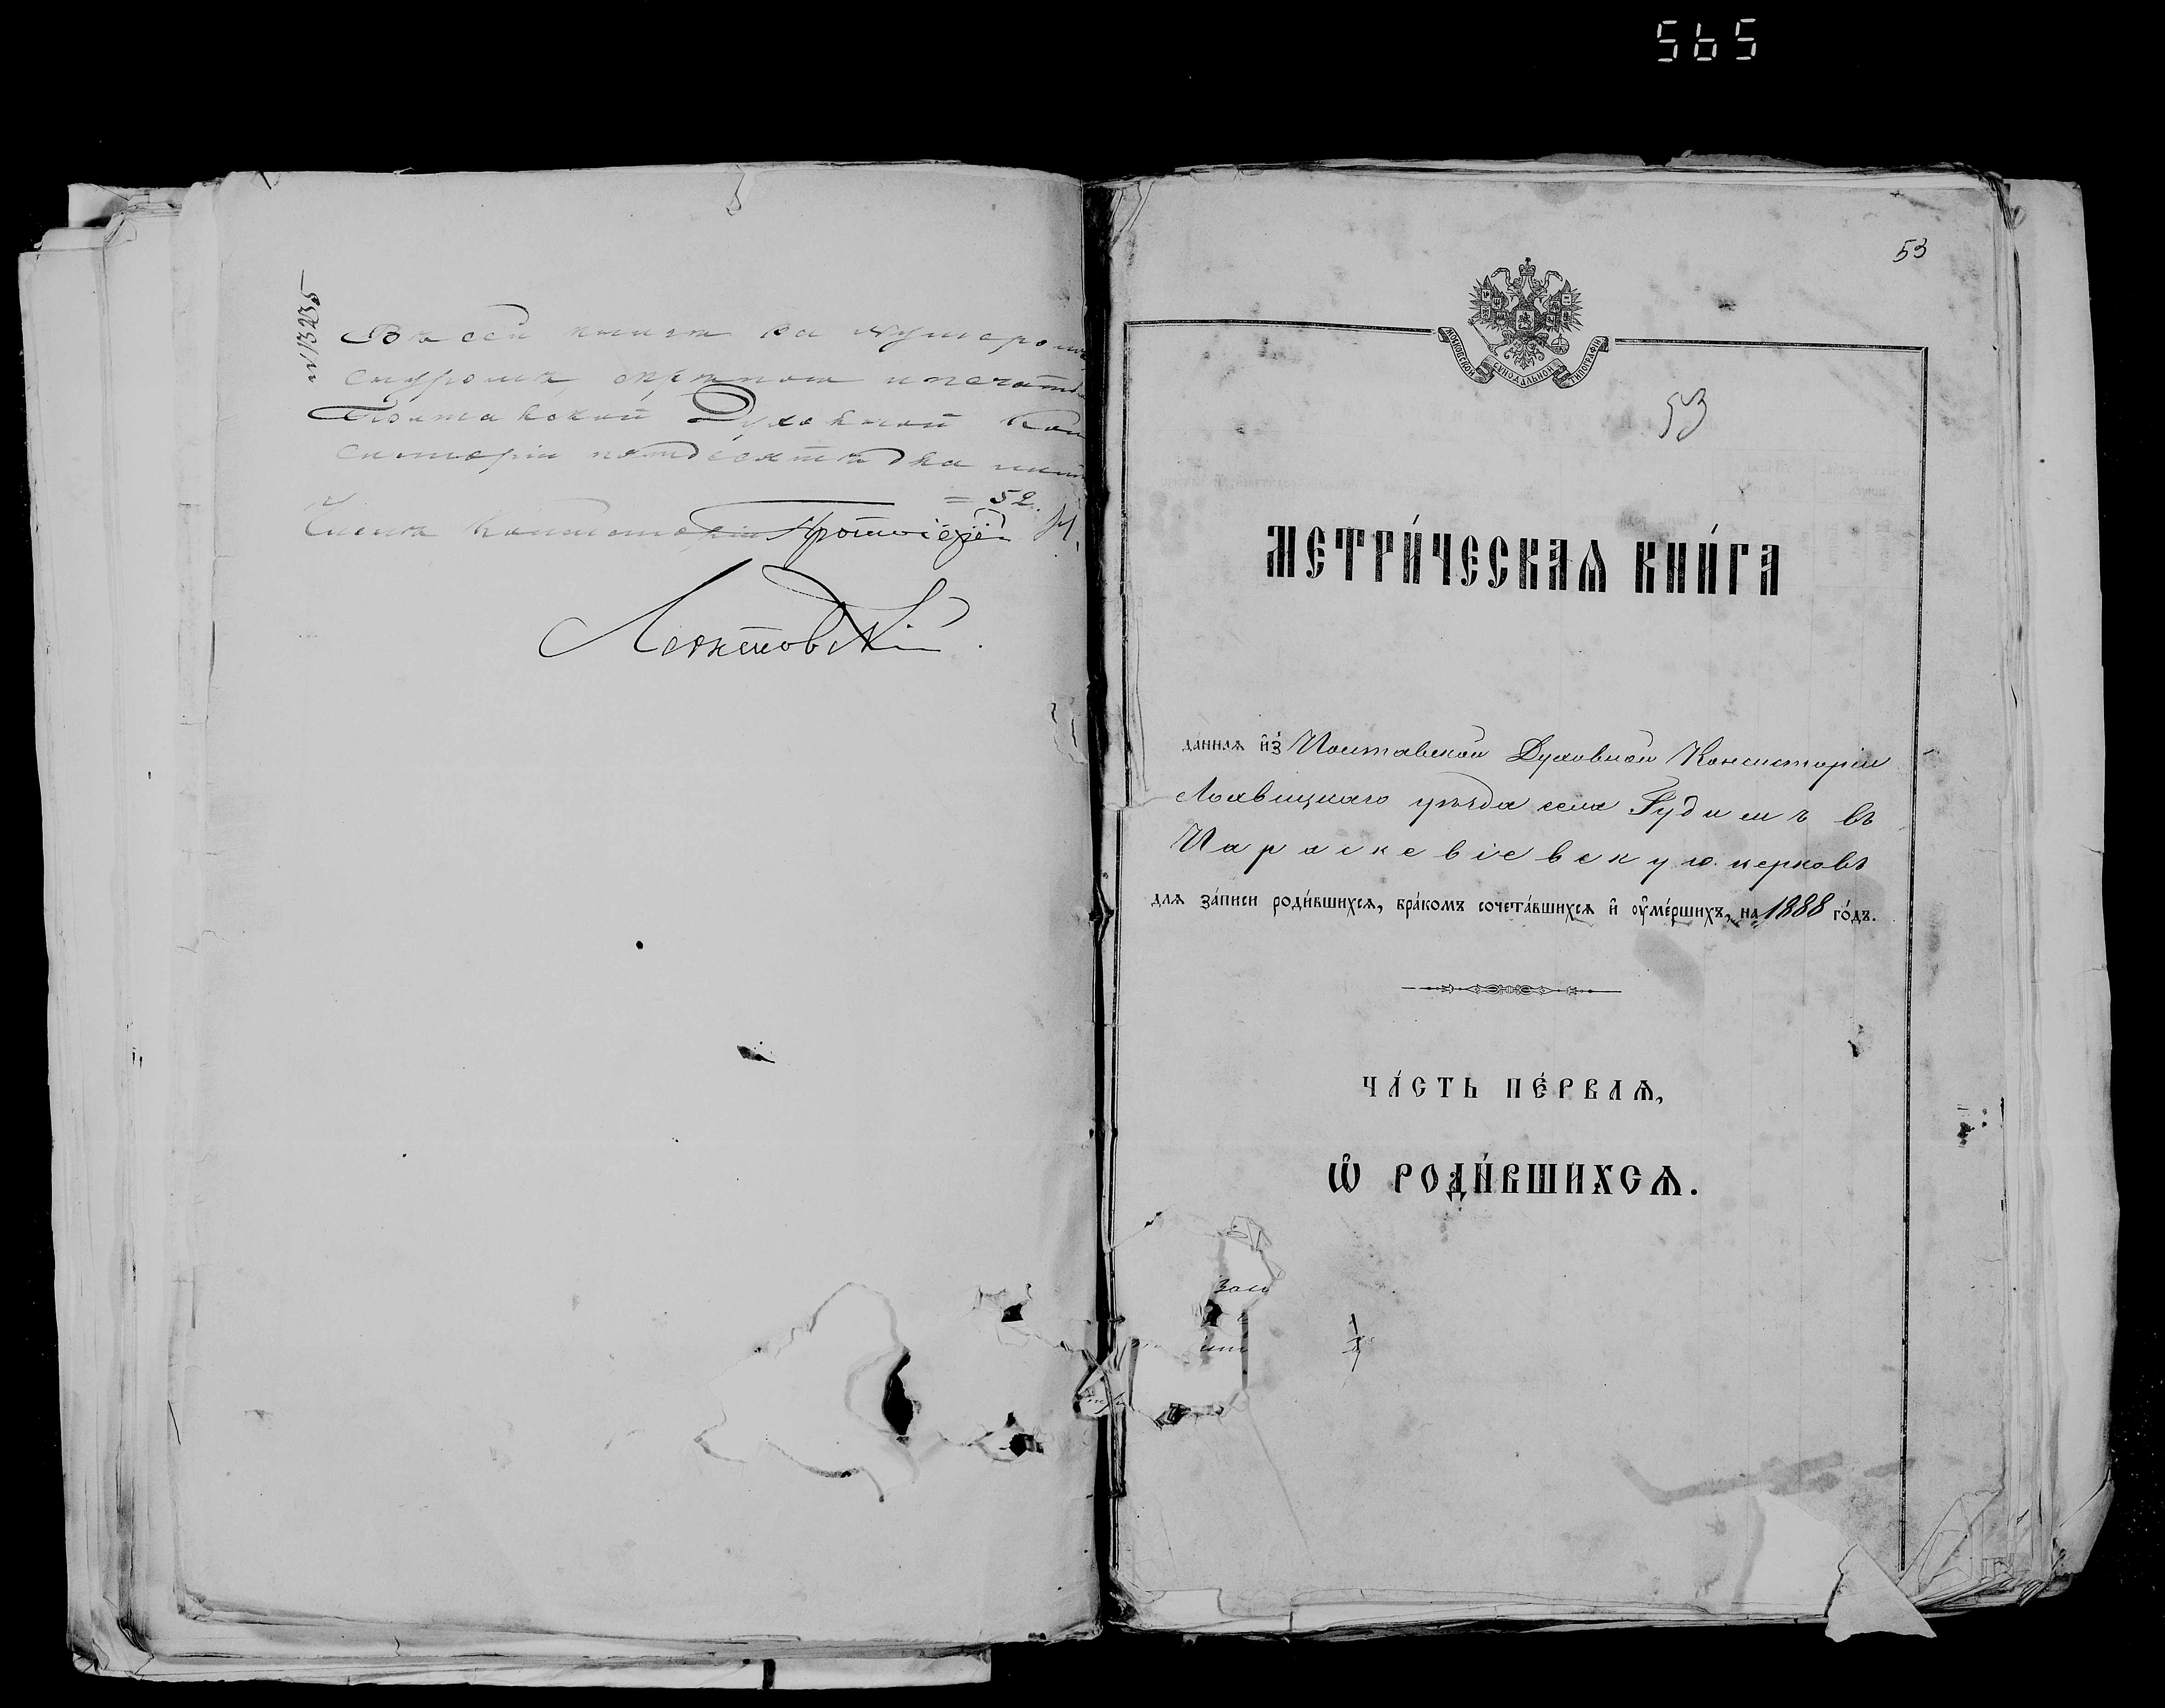 565
№ 13235
Въ сей книгѣ за нумеромъ
шнуромъ, скрѣпою и печатью
Полтавской Духовной Кон
систоріи пятьдесятъ два лист
= 52.
Членъ Консисторіи Протоіерей Н.
53
МОСКОВСКОЙ СѴНОДАЛЬНОЙ ТИПОГРАФІИ
53
МЕТРИ́ЧЕСКАѦ КНИ́ГА
да́ннаѧ и҆з̾ Полтавской Духовной Консисторіи
Лохвицкаго уѣзда села Гудимъ въ
Параскевіевскую церковь
длѧ за́писи роди́вшихсѧ, бра́комъ сочета́вшихсѧ и҆ ᲂу҆ме́ршихъ, на 1888 го́дъ.
ЧА́СТЬ ПЕ́РВАѦ,
Ѽ РОДИ́ВШИХСѦ.